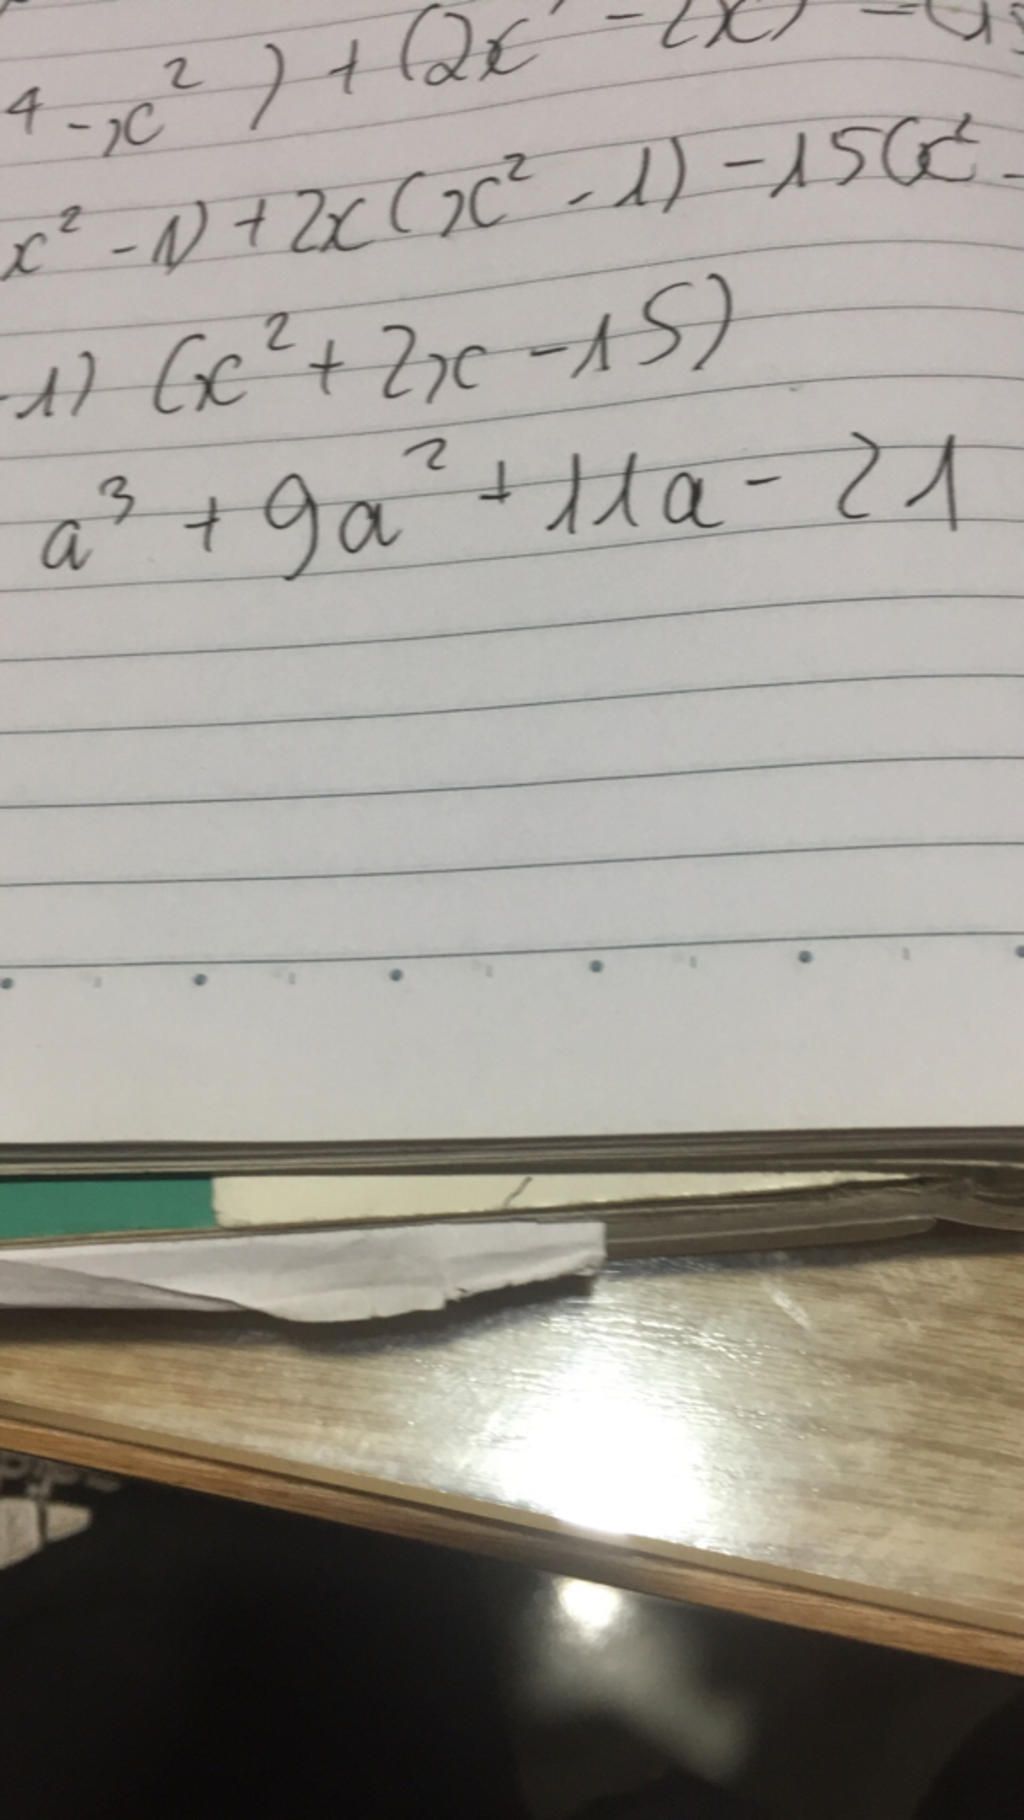 4 -x² ) + (2x - 2x) -
x² - 1) + 2x(x² - 1) - 15(x² -
-1) (x² + 2x - 15)
a³ + 9a² + 11a - 21